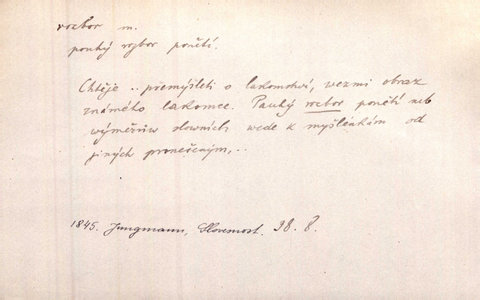 rozbor m.
pouhý rozbor ponětí.
Chtěje .. přemýšleti o lakomství, wezmi obraz
známého lakomce. Pauhý rozbor ponětí neb
výměrůw slowních wede k myšlénkám od
jiných proneseným, ..
1845. Jungmann, Slovesnost. 38. 8.